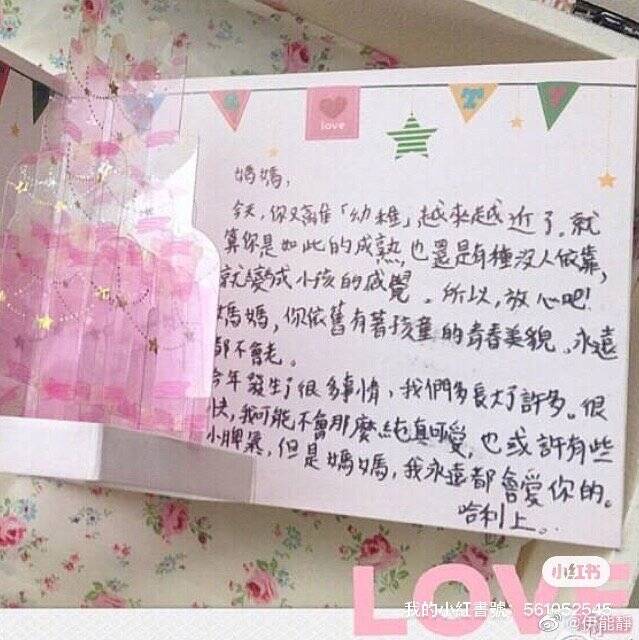 love
T
媽媽,
今天,你又離「幼稚」越來越近了。就
算你是如此的成熟,也還是有種沒人依靠,
就變成小孩的感覺。所以,放心吧!
媽媽,你依舊有著孩童的青春美貌,永遠
都不會老。
今年發生了很多事情,我們多長大了許多。很
快,我可能不會那麼純真可愛,也或許有些
小脾氣,但是媽媽,我永遠都會愛你的。
哈利上。
小红书
LOVE
我的小紅書號: 561952545
@伊能靜